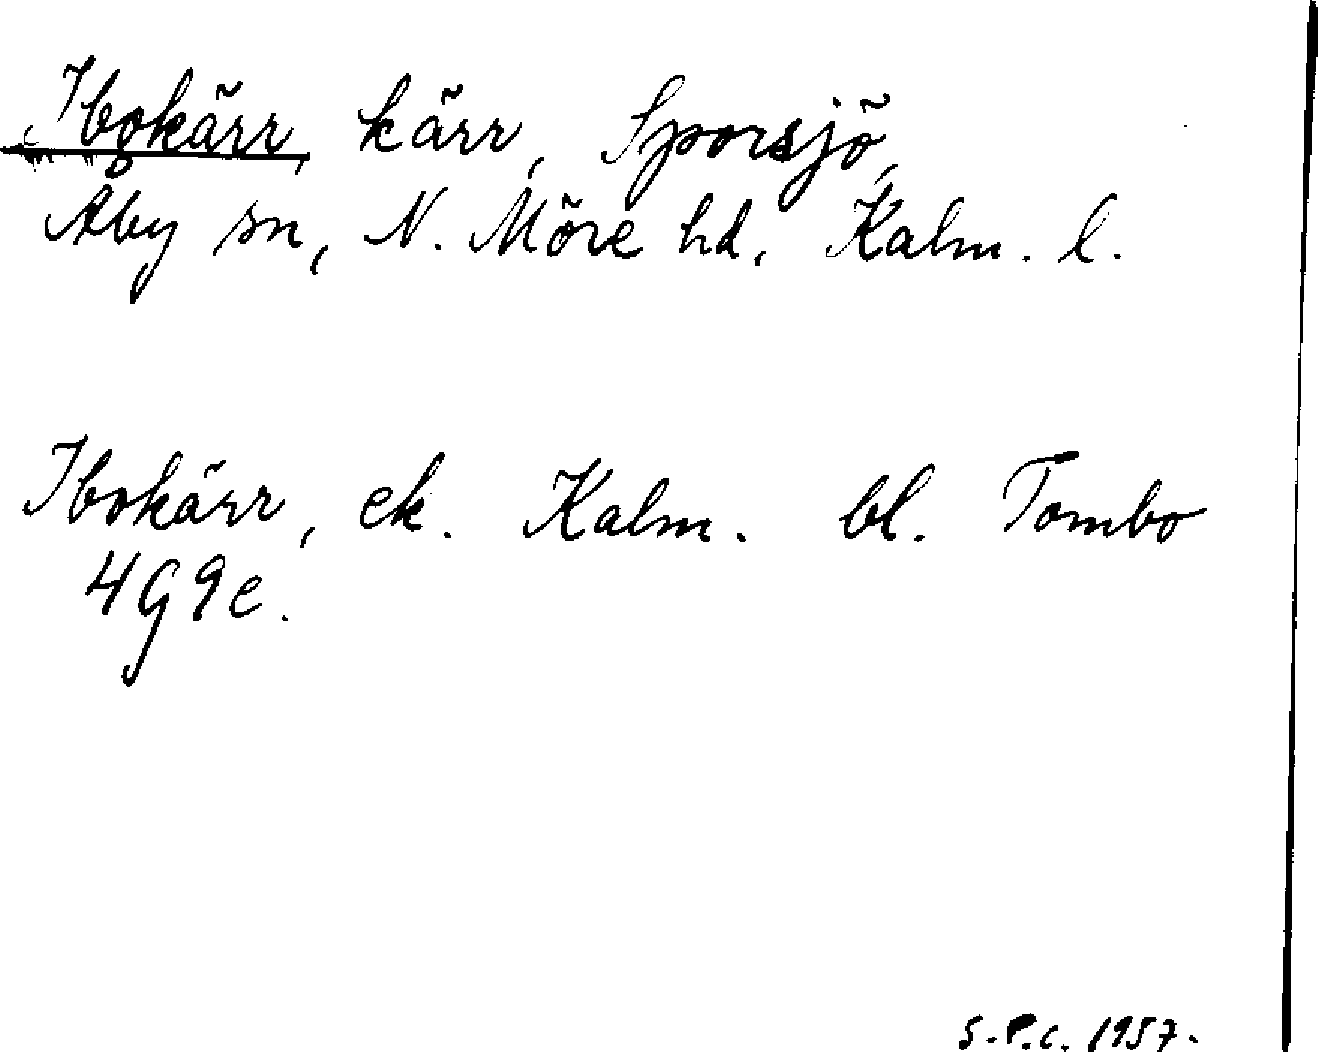 Ibokärr, kärr, Sporsjö,
Åby sn, N. Möre hd, Kalm. l.
Ibokärr, ek. Kalm. bl. Tombo
4G9e.
S.P.C. 1957.